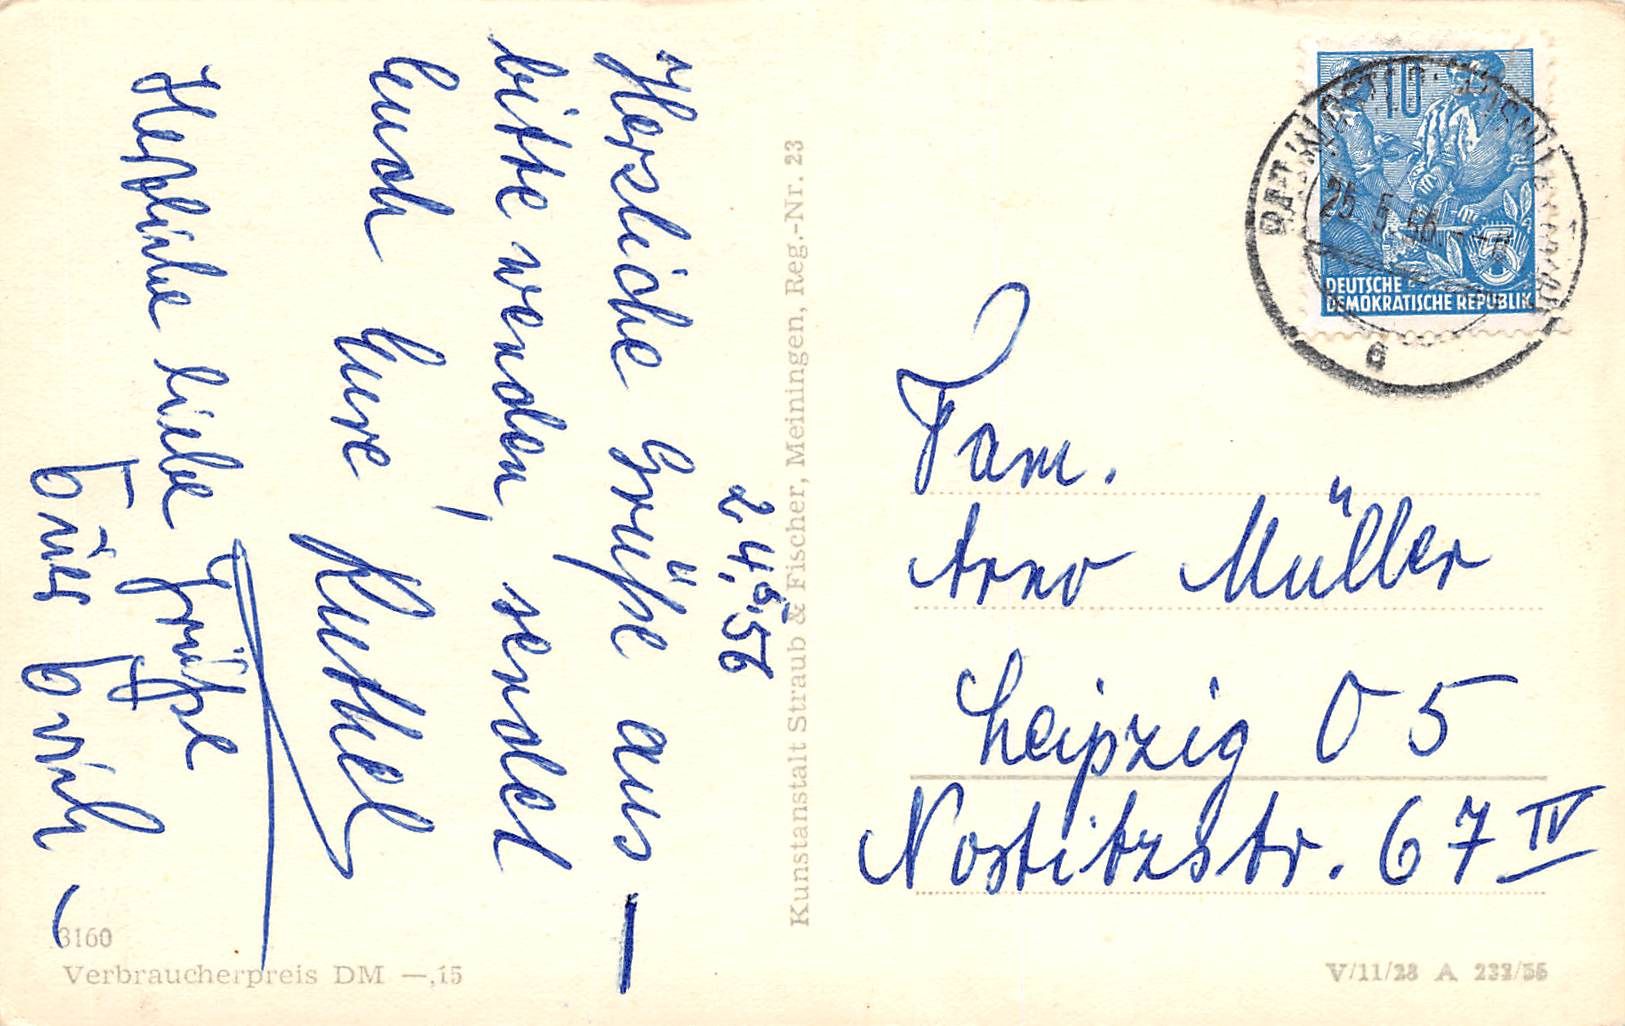 24.5.56
Herzliche Grüße aus —
bitte wenden, sendet
Euch Eure Ruthel
Herzliche liebe Grüße
Euer
Kunstanstalt Straub & Fischer, Meiningen, Reg.-Nr. 23
3160
Verbraucherpreis DM —,15
10
DEUTSCHE
DEMOKRATISCHE REPUBLIK
5
25.5.56
a
Fam.
Arno Müller
Leipzig O 5
Nostitzstr. 67 IV
V/11/28 A 232/55